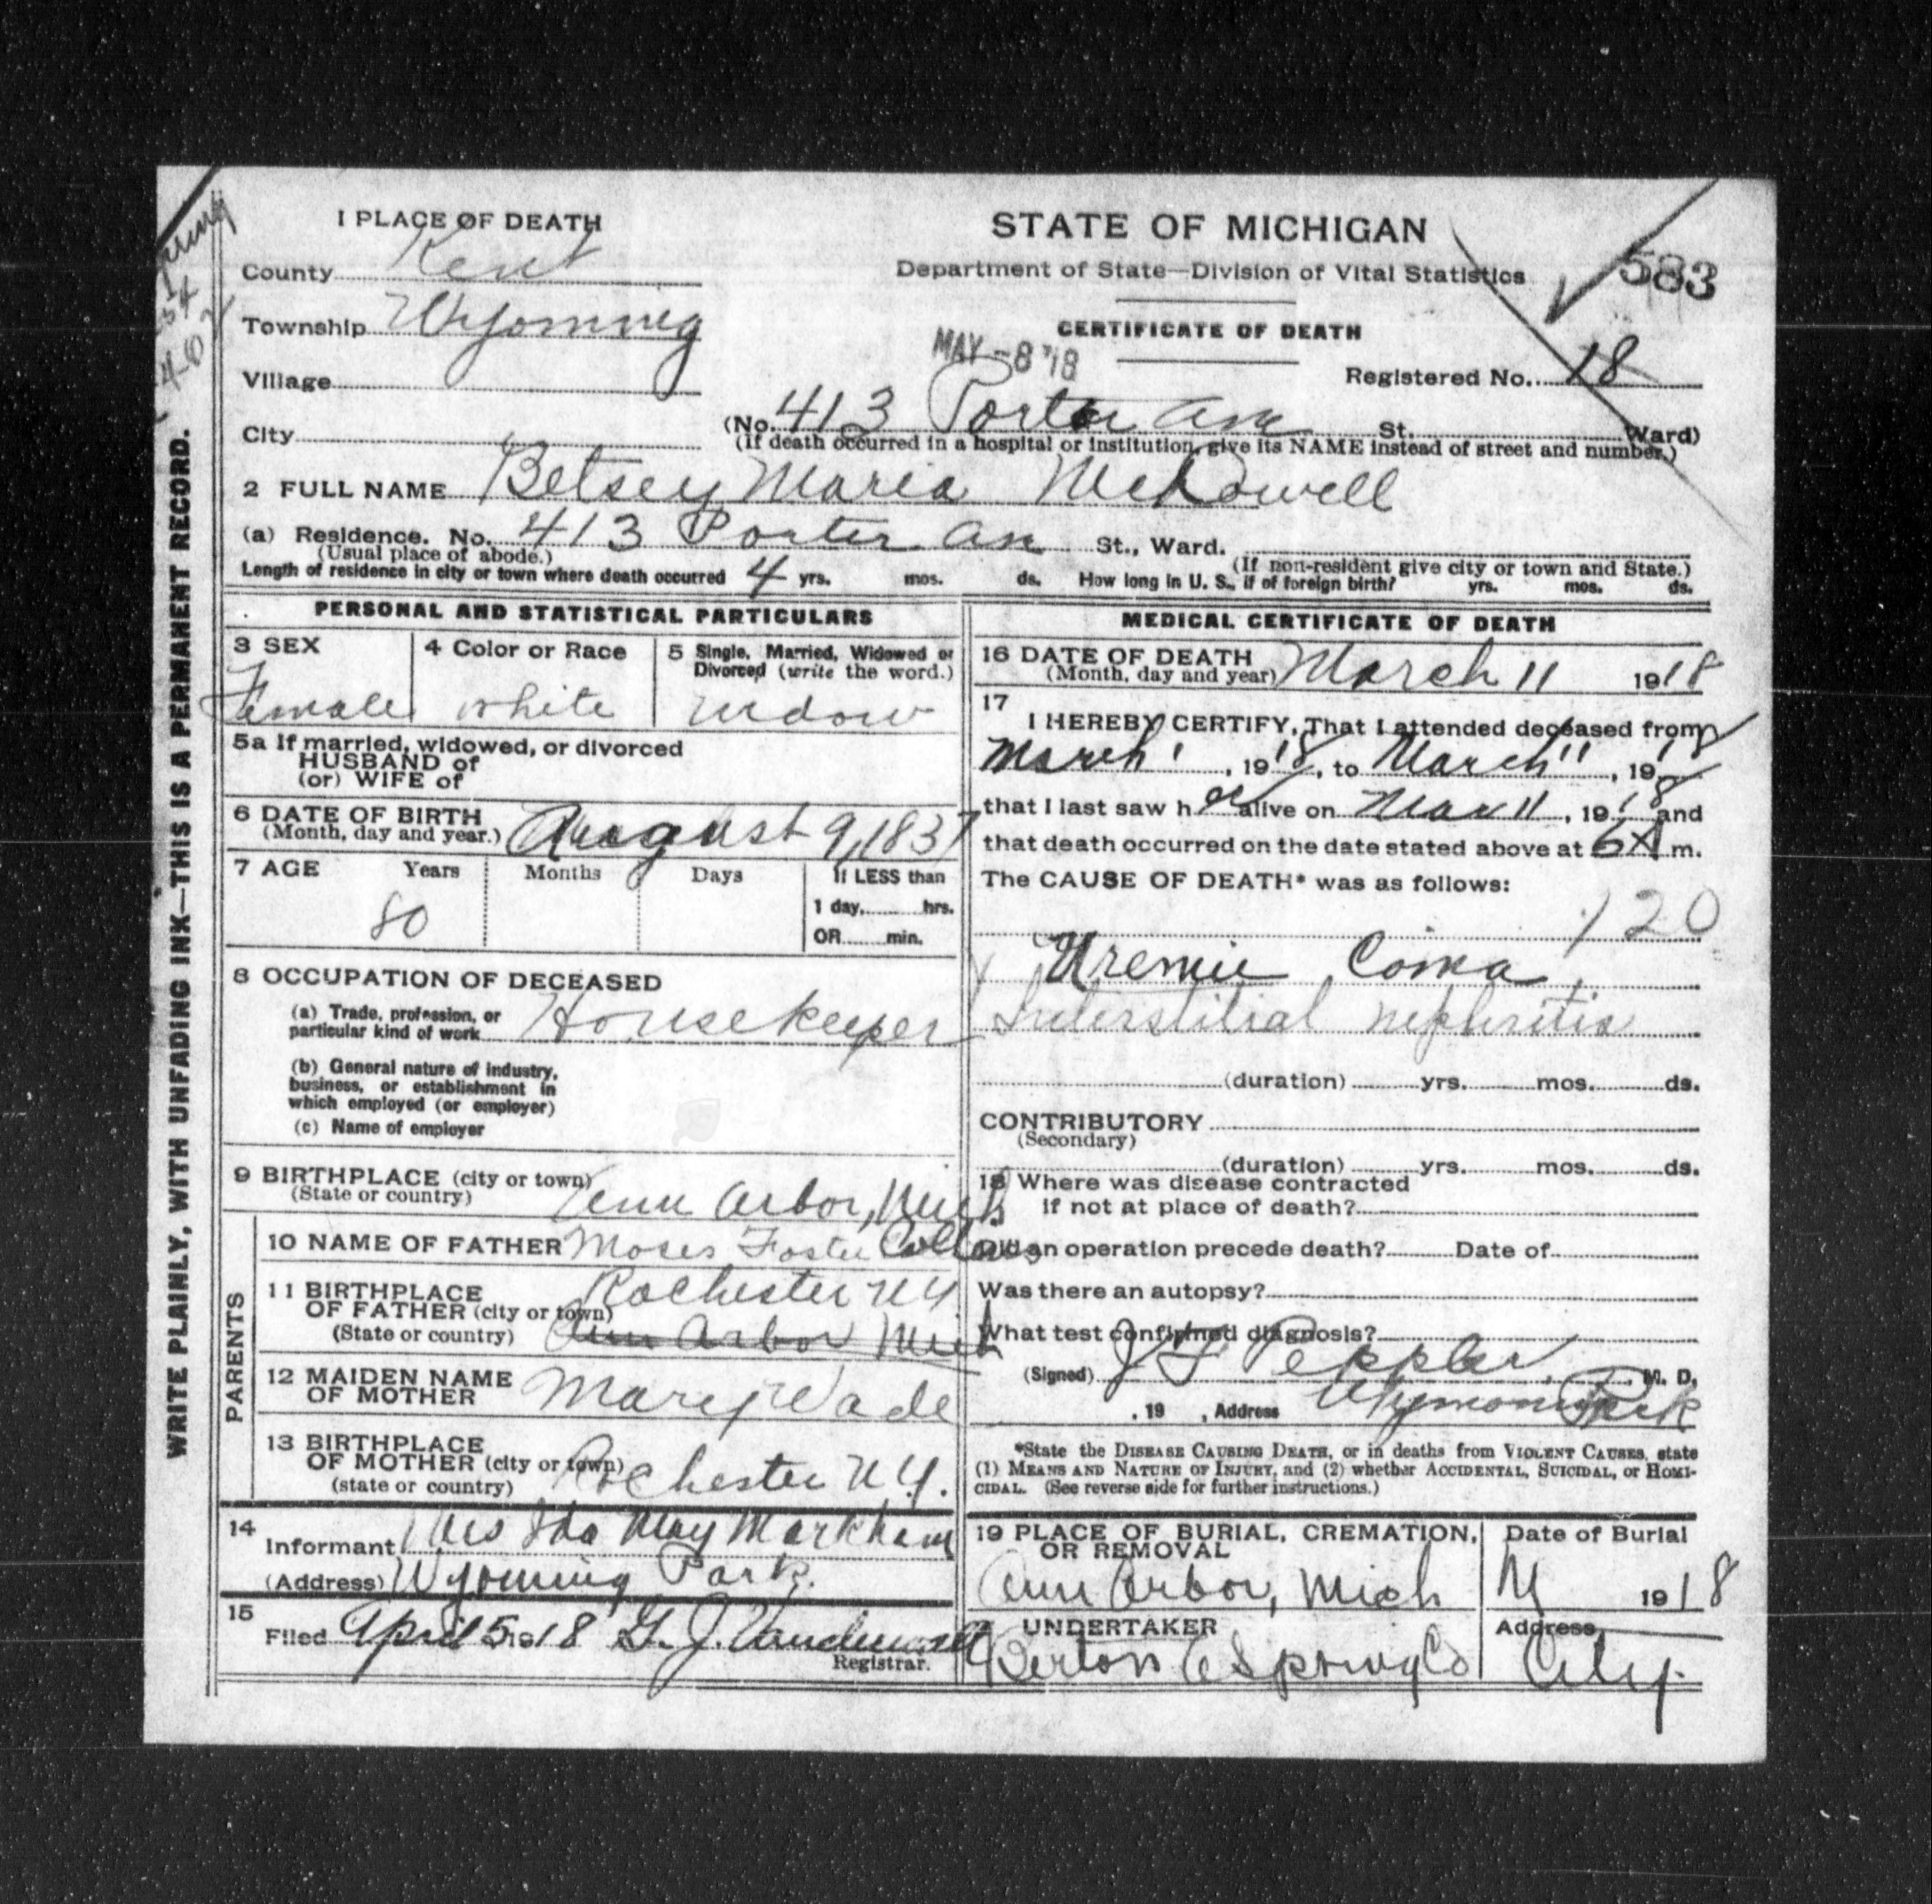 1 PLACE OF DEATH
County Kent
Township Wyoming
Village
City
STATE OF MICHIGAN
Department of State—Division of Vital Statistics
583
CERTIFICATE OF DEATH
MAY -8 '18
Registered No. 18
(No. 413 Porter Ave St. Ward)
(If death occurred in a hospital or institution, give its NAME instead of street and number.)
2 FULL NAME Betsey Maria McDowell
(a) Residence. No. 413 Porter Ave St., Ward.
(Usual place of abode.) (If non-resident give city or town and State.)
Length of residence in city or town where death occurred 4 yrs. mos. ds. How long in U. S., if of foreign birth? yrs. mos. ds.
WRITE PLAINLY, WITH UNFADING INK—THIS IS A PERMANENT RECORD.
PERSONAL AND STATISTICAL PARTICULARS
3 SEX
Female
4 Color or Race
white
5 Single, Married, Widowed or
Divorced (write the word.)
widow
5a If married, widowed, or divorced
HUSBAND of
(or) WIFE of
6 DATE OF BIRTH
(Month, day and year.) August 9, 1837
7 AGE Years Months Days If LESS than
80
1 day, hrs.
OR min.
8 OCCUPATION OF DECEASED
(a) Trade, profession, or
particular kind of work Housekeeper
(b) General nature of industry,
business, or establishment in
which employed (or employer)
(c) Name of employer
9 BIRTHPLACE (city or town)
(State or country) Ann Arbor, Mich
PARENTS
10 NAME OF FATHER Moses Foster Collins
11 BIRTHPLACE
OF FATHER (city or town) Rochester N Y
(State or country) Ann Arbor Mich
12 MAIDEN NAME
OF MOTHER Mary Wade
13 BIRTHPLACE
OF MOTHER (city or town)
(state or country) Rochester N.Y.
14
Informant Mrs Ida May Markham
(Address) Wyoming Park.
15
Filed April 5 1918 G. J.
Registrar.
MEDICAL CERTIFICATE OF DEATH
16 DATE OF DEATH
(Month, day and year) March 11 1918
17
I HEREBY CERTIFY, That I attended deceased from
March 1, 1918, to March 11, 1918
that I last saw her alive on Mar 11, 1918 and
that death occurred on the date stated above at 6 A m.
The CAUSE OF DEATH* was as follows:
120
Uremic Coma
Interstitial nephritis
(duration) yrs. mos. ds.
CONTRIBUTORY
(Secondary)
(duration) yrs. mos. ds.
18 Where was disease contracted
if not at place of death?
Did an operation precede death? Date of
Was there an autopsy?
What test confirmed diagnosis?
(Signed) J F Peppler, M. D.
, 19 , Address Wyoming Park
*State the DISEASE CAUSING DEATH, or in deaths from VIOLENT CAUSES, state
(1) MEANS AND NATURE OF INJURY, and (2) whether ACCIDENTAL, SUICIDAL, or HOMI-
CIDAL. (See reverse side for further instructions.)
19 PLACE OF BURIAL, CREMATION,
OR REMOVAL
Ann Arbor, Mich
Date of Burial
M 1918
UNDERTAKER
Berton Spring Co
Address
City.